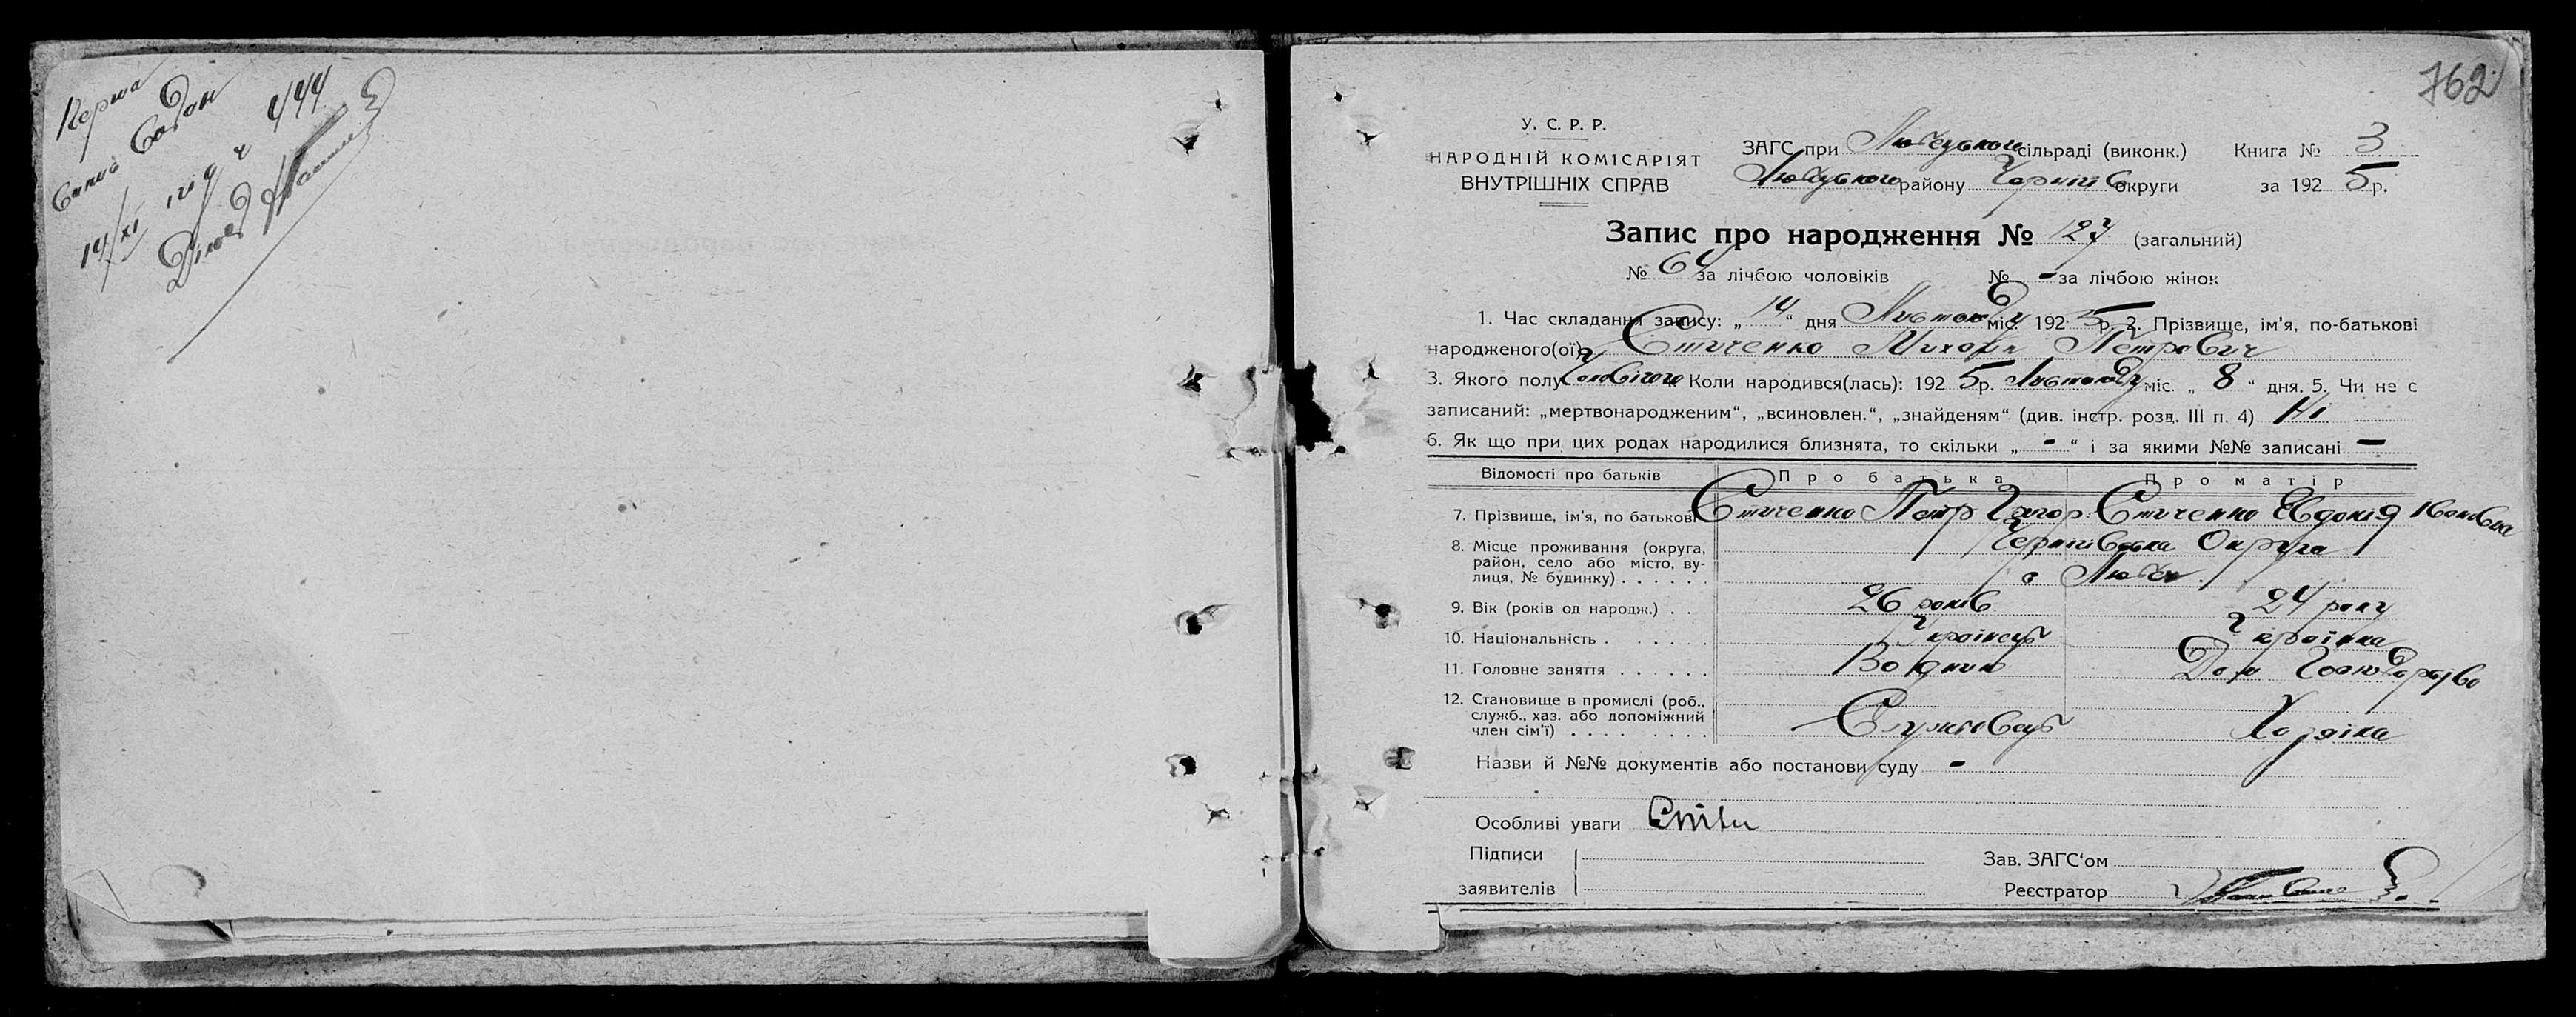 Перша
випис видан
14/XI 1925 р. № 444
762
У. С. Р. Р.
НАРОДНІЙ КОМІСАРІЯТ
ВНУТРІШНІХ СПРАВ
ЗАГС при Любецького сільраді (виконк.) Книга № 3
Любецького району Чернігів округи за 1925 р.
Запис про народження № 127 (загальний)
№ 64 за лічбою чоловіків № - за лічбою жінок
1. Час складання запису: „14“ дня Листопаду міс. 1925 р. 2. Прізвище, ім'я, по-батькові
народженого(ої) Стиченко Михаил Петрович
3. Якого полу Чоловічого Коли народився(лась): 1925 р. Листопаду міс. „8“ дня. 5. Чи не є
записаний: „мертвонародженим“, „всиновлен.“, „знайденям“ (див. інстр. розд. III п. 4) Ні
6. Як що при цих родах народилися близнята, то скільки „-“ і за якими №№ записані -
Відомості про батьків Про батька Про матір
7. Прізвище, ім'я, по батькові Стиченко Петр Григор. Стиченко Евдокія Івановна
8. Місце проживання (округа, Чернігівська Округа
район, село або місто, ву-
лиця, № будинку) . . . . . . с Любеч
9. Вік (років од народж.) . . 26 років 24 року
10. Національність . . . . . . Українець Українка
11. Головне заняття . . . . . . Дом Господарство
12. Становище в промислі (роб.,
служб., хаз. або допоміжний
член сім'ї) . . . . . . . . . Служовець Хозяїка
Назви й №№ документів або постанови суду -
Особливі уваги
Підписи
заявителів
Зав. ЗАГС'ом
Реєстратор